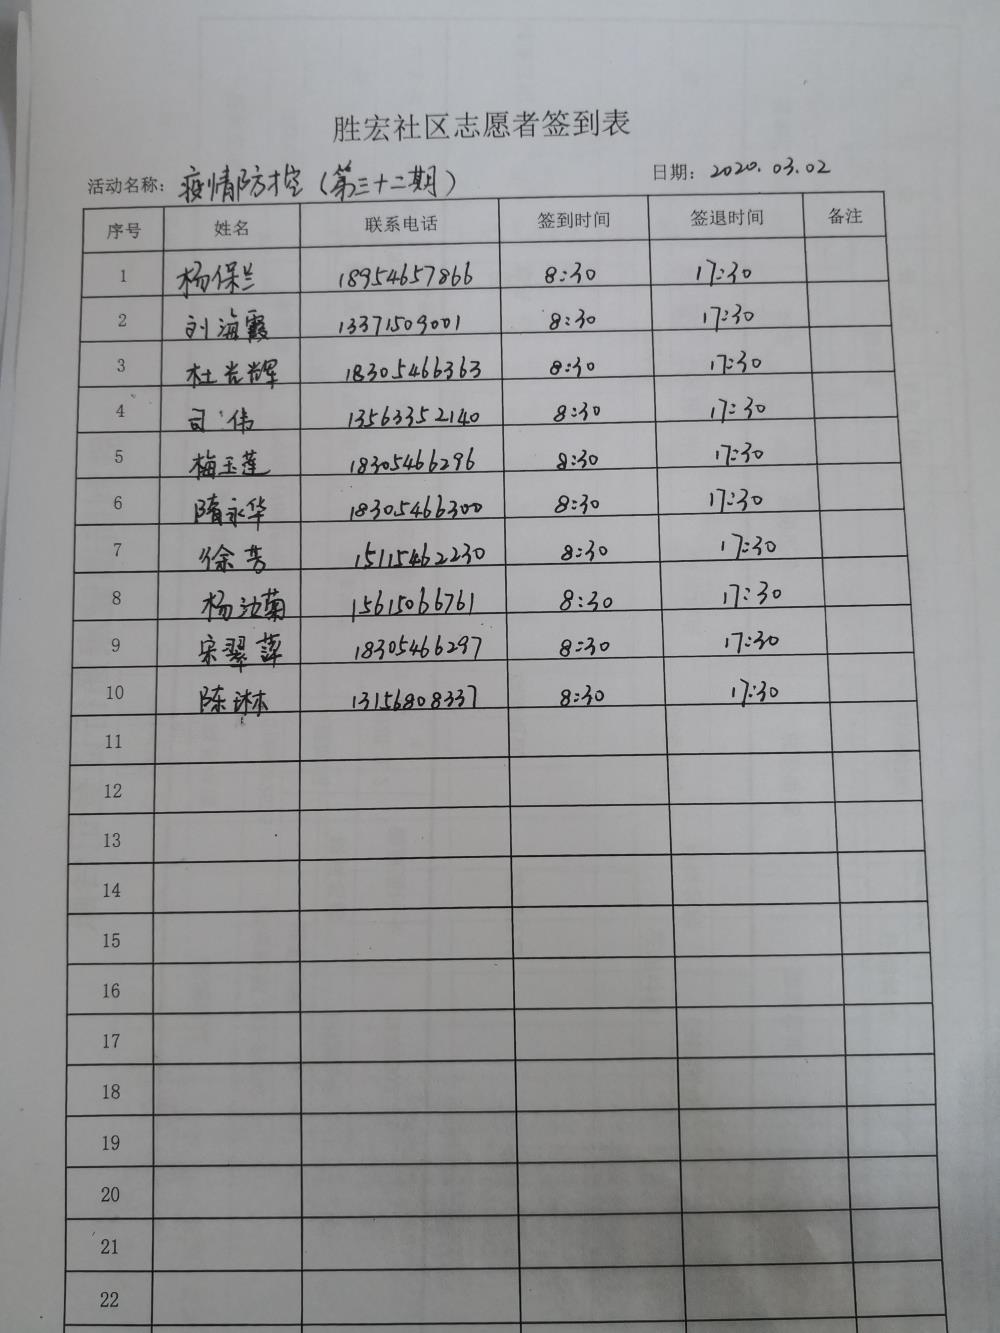 胜宏社区志愿者签到表
活动名称: 疫情防控（第三十二期） 日期: 2020.03.02
序号 姓名 联系电话 签到时间 签退时间 备注
1 杨保兰 18954657866 8:30 17:30
2 刘海霞 13371509001 8:30 17:30
3 杜光辉 18305466363 8:30 17:30
4 司伟 13563352140 8:30 17:30
5 梅玉莲 18305466296 8:30 17:30
6 隋永华 18305466300 8:30 17:30
7 徐芳 15115462230 8:30 17:30
8 杨汝菊 15615066761 8:30 17:30
9 宋翠萍 18305466297 8:30 17:30
10 陈琳 13156808337 8:30 17:30
11
12
13
14
15
16
17
18
19
20
21
22